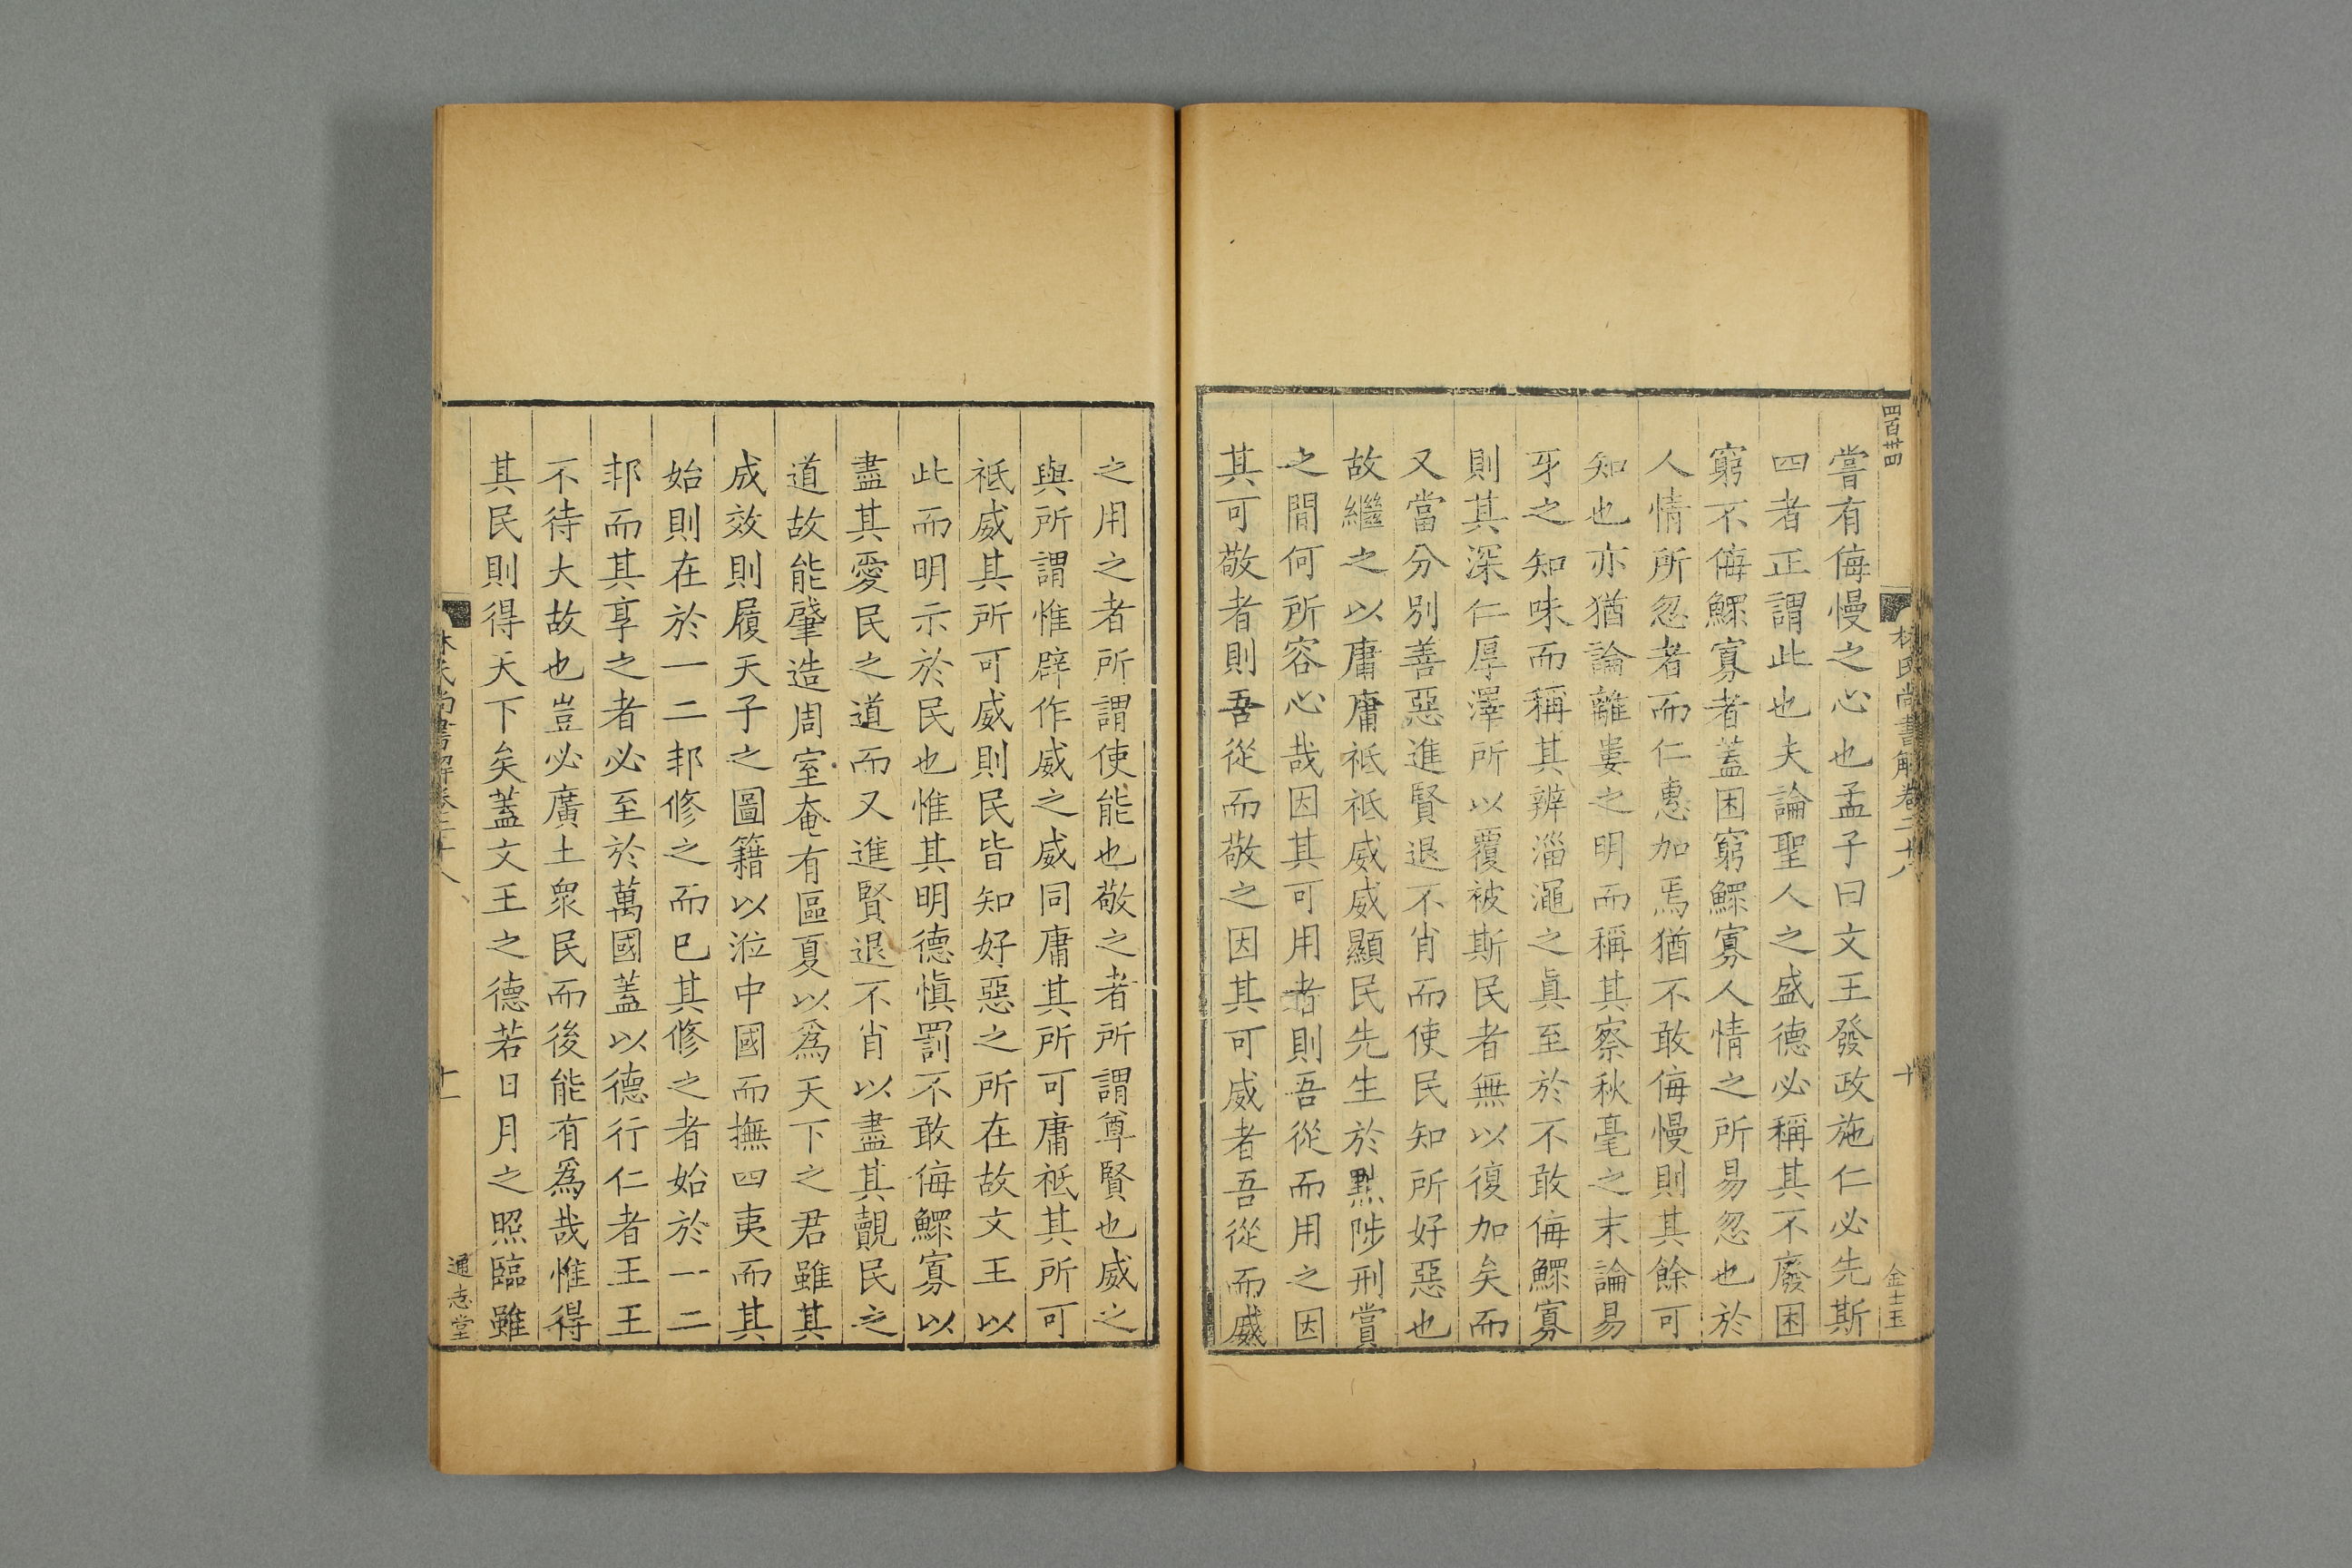 四百廿四
林氏尚書解卷二十八
十
金士玉
嘗有侮慢之心也孟子曰文王發政施仁必先斯
四者正謂此也夫論聖人之盛德必稱其不廢困
窮不侮鰥寡者蓋困窮鰥寡人情之所易忽也於
人情所忽者而仁惠加焉猶不敢侮慢則其餘可
知也亦猶論離婁之明而稱其察秋毫之末論易
牙之知味而稱其辨淄澠之眞至於不敢侮鰥寡
則其深仁厚澤所以覆被斯民者無以復加矣而
又當分別善惡進賢退不肖而使民知所好惡也
故繼之以庸庸祗祗威威顯民先生於黜陟刑賞
之間何所容心哉因其可用者則吾從而用之因
其可敬者則吾從而敬之因其可威者吾從而威
之用之者所謂使能也敬之者所謂尊賢也威之
與所謂惟辟作威之威同庸其所可庸祗其所可
祗威其所可威則民皆知好惡之所在故文王以
此而明示於民也惟其明德愼罰不敢侮鰥寡以
盡其愛民之道而又進賢退不肖以盡其覿民之
道故能肇造周室奄有區夏以爲天下之君雖其
成效則履天子之圖籍以涖中國而撫四夷而其
始則在於一二邦修之而已其修之者始於一二
邦而其享之者必至於萬國蓋以德行仁者王王
不待大故也豈必廣土衆民而後能有爲哉惟得
其民則得天下矣蓋文王之德若日月之照臨雖
林氏尚書解卷二十八
十一
通志堂